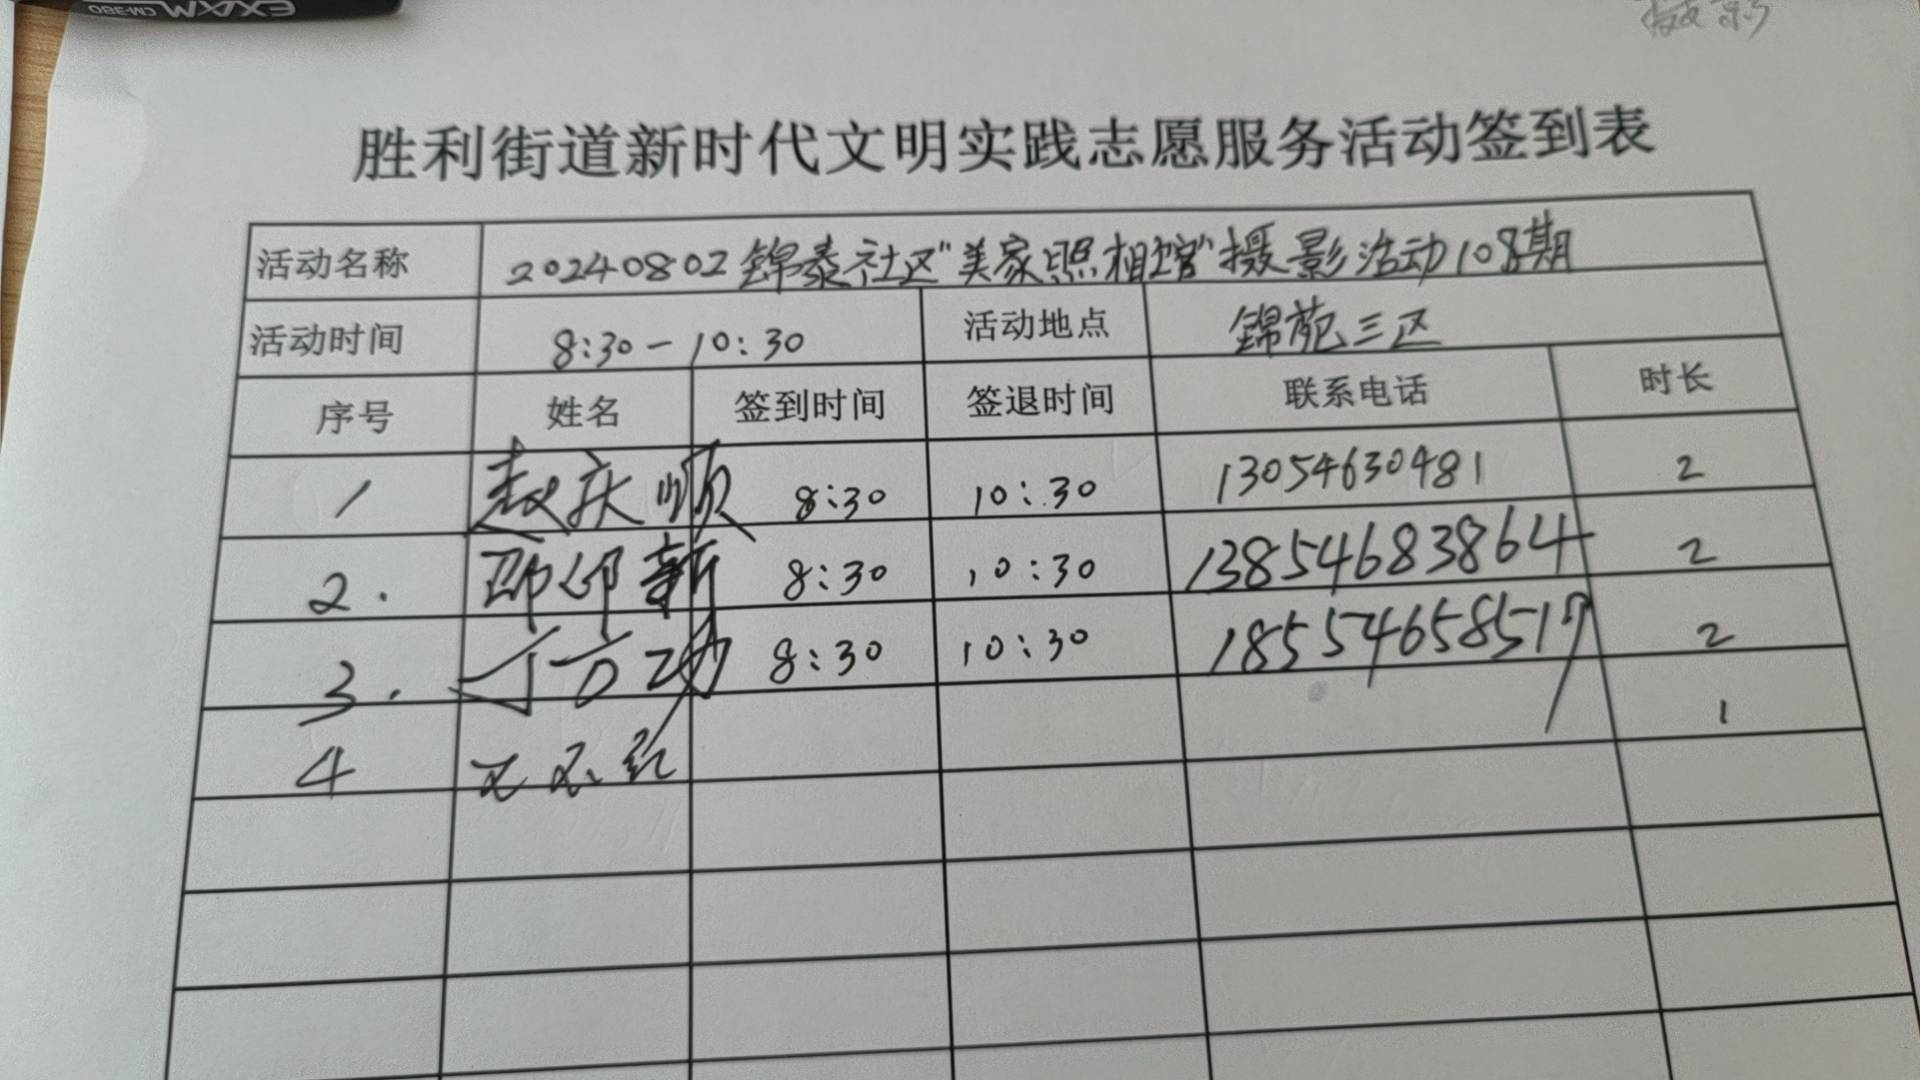 胜利街道新时代文明实践志愿服务活动签到表
活动名称 20240802锦泰社区"美家照相馆"摄影活动108期
活动时间 8:30-10:30 活动地点 锦苑三区
序号 姓名 签到时间 签退时间 联系电话 时长
1 赵庆顺 8:30 10:30 13054630481 2
2. 新 8:30 10:30 13854683864 2
3. 8:30 10:30 18554658517 2
4 1